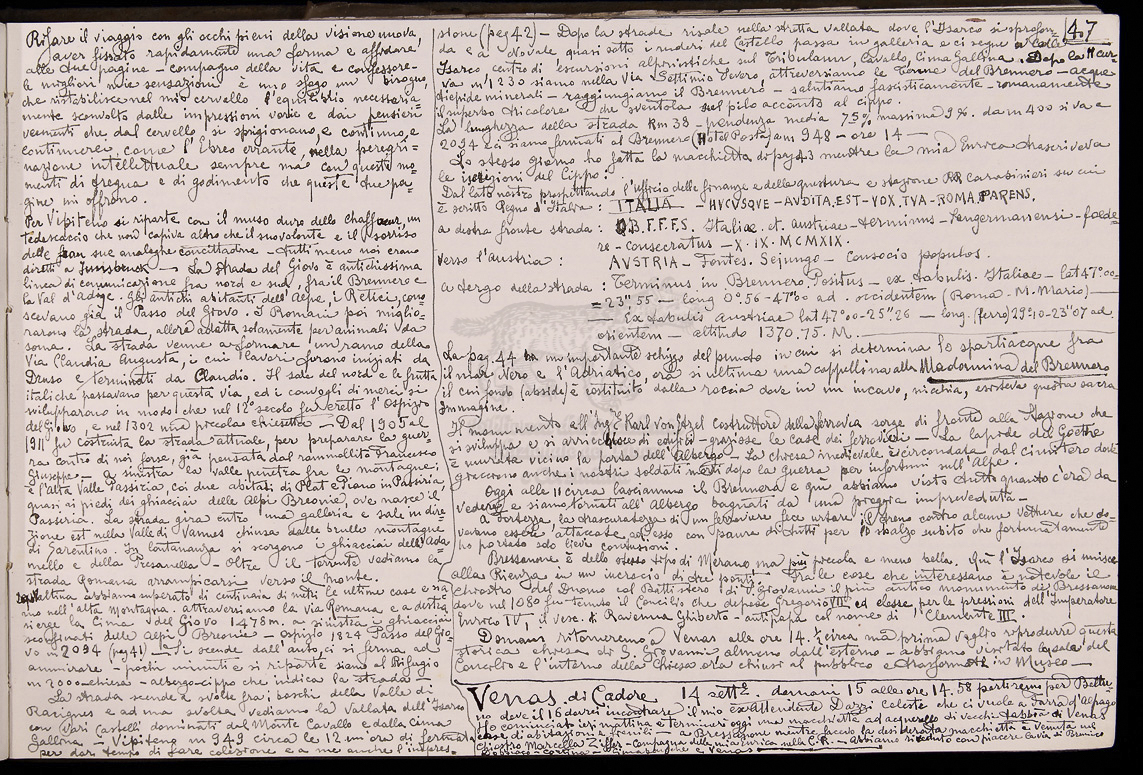 Rifare il viaggio con gli occhi pieni della visione nuova
aver fissato rapidamente una forma e affidare
alle due pagine - compagno della vita e confessore -
le migliori mie sensazioni è uno sfogo un bisogno,
che ristabilisce nel mio cervello l'equilibrio necessaria
mente sconvolto dalle impressioni varie e dai pensieri
veementi che dal cervello, si sprigionano, e continuo, e
continuerei, come l'Ebreo errante, nella peregri-
nazione intellettuale sempre ma con queste mo-
menti di tregua e di godimento che queste due pa-
gine mi offrono.
Per Vipiteno si riparte con il muso duro dello chaffeur, un
tedescaccio che non capiva altro che il suo volante e il sorriso
delle sue analoghe concittadine - tutti meno noi erano
diretti a Innsbruck - La strada del Giovo è antichissima
linea di comunicazione fra nord e sud, fra il Brennero e
la Val d'Adige. Gli antichi abitanti dell'Alpe, i Retici, cono-
scevano già il Passo del Giovo. I Romani poi miglio-
rarono la strada, allora adatta solamente per animali da
soma. La strada venne a formare un ramo della
Via Claudia Augusta, i cui lavori furono iniziati da
Druso e terminati da Claudio. Il sale del nord e le frutta
italiche passavano per questa via, ed i convogli di merci si
svilupparono in modo che nel 12° secolo fu eretto l'Ospizio
del Giovo, e nel 1302 una piccola chiesetta - Dal 1905 al
1911 fu costruita la strada attuale, per preparare la guer-
ra contro di noi forse, già pensata dal rammollito Francesco
Giuseppe -
A sinistra la valle penetra fra le montagne;
è l'alta Valle Passiria, coi due abitati di Plat e Piano in Passiria,
quasi ai piedi dei ghiacciai delle Alpi Breonie, ove nasce il
Passirio. La strada gira entro una galleria e sale in dire-
zione est nella Valle di Vannes chiusa dalle brulle montagne
di Sarentino. In lontananza si scorgono i ghiacciai dell'Ada-
mello e della Presanella - Oltre il torrente vediamo la
strada Romana arrampicarsi verso il monte.
abbiamo superato di centinaia di metri le ultime case e sia
mo nell'alta montagna. attraversiamo la via Romana e a destra
si erge la Cima del Giovo 1478 m. a sinistra i ghiacciai
sconfinati delle Alpi Breonie - ospizio 1824 Passo del Gio-
vo m 2094 (pag 41) - Si scende dall'auto, ci si ferma ad
ammirare - pochi minuti e si riparte siamo al Rifugio
m 2000 - chiesa - albergo - cippo che indica la strada
La strada scende a svolte fra i boschi della Valle di
Racignes e ad una svolta vediamo la Vallata dell'Isarco
con vari Castelli dominati dal Monte Cavallo e dalla Cima
Gallina - Vipiteno m 949 circa le 12 un'ora di fermata
per dar tempo di fare colezione e a me anche l'impres-
47
sione (pag 42) - Dopo la strada risale nella stretta vallata dove l'Isarco si sprofon-
da e a Novale quasi sotto i ruderi del Castello passa in galleria e ci segue a Colle
Isarco centro di escursioni alpinistiche sul Tribulaun, Cavallo, Cima Gallina. Dopo la
va m 1230 siamo nella Via Settimio Severo, attraversiamo le Terme del Brennero - acque
tiepide minerali - raggiungiamo il Brennero - salutiamo fascisticamente - romanamente
il superbo tricolore che sventola sul pilo accanto al cippo.
La lunghezza della strada Km 38 - pendenza media 7,5% massima 9%. da m 400 si va a
2094 Ci siamo fermati al Brennero (Hotel Posta) am 948 - ore 14 -
Lo stesso giorno ho fatta la macchietta di pag 43 mentre la mia Enrica trascriveva
le iscrizioni del Cippo:
Dal lato nostro prospettando l'ufficio delle finanze e della questura e stazione RR Carabinieri su cui
è scritto Regno d'Italia: ITALIA - HVCVSQVE - AVDITA. EST - VOX. TVA - ROMA. PARENS.
a destra fronte strada: Q.B.F.F.F.S. Italiae. et. Austriae - terminus - Sangermanensi - foede-
re - consecratus - X. IX. MCMXIX.
verso l'Austria: AVSTRIA - Fontes. Sejungo - Consocio populos.
a tergo della strada: Terminus. in Brennero. Positus - ex. tabulis. Italiae - lat 47°00-
= 23" 55 - long 0°.56-47"60 ad. occidentem (Roma - M. Mario) -
- Ex tabulis Austriae lat 47°00-25"26 - long (ferro) 29°10-23"07 ad.
orientem - altitud 1370.75. M.
La pag. 44 ha un importante schizzo del punto in cui si determina lo spartiacque fra
il mar Nero e l'Adriatico, ora si ultima una cappellina alla Madonnina del Brennero
il cui fondo (abside) è costituito dalla roccia dove in un incavo, nicchia, esisteva questa sacra
Immagine.
Il monumento all'Ing. Karl von Etzel costruttore della ferrovia sorge di fronte alla stazione che
si sviluppa e si arricchisce di edifici - graziose le case dei ferrovieri - La lapide del Goethe
è murata vicino la porta dell'Albergo - La chiesa medievale è circondata dal cimitero dove
giacciono anche i nostri soldati morti dopo la guerra per infortuni sull'Alpe.
Oggi alle 11 circa lasciammo il Brennero e quì abbiamo visto tutto quanto c'era da
vedere e siamo tornati all'Albergo bagnati da una pioggia impreveduta -
a Fortezza, la trascuratezza di un ferroviere fece urtare il treno contro alcune vetture che do-
vevano essere attaccate ad esso con paura di tutti per lo sbalzo subito che fortunatamente
ha portato solo lievi contusioni.
Bressanone è dello stesso tipo di Merano ma più piccola e meno bella. Qui l'Isarco si unisce
alla Rienza in un incrocio di tre ponti - Fra le cose che interessano è notevole il
chiostro del Duomo col Battistero di S. Giovanni il più antico monumento di Bressanone
dove nel 1080 fu tenuto il Concilio che depose Gregorio VII ed elesse, per le pressioni dell'Imperatore
Enrico IV, il vesc. di Ravenna Ghiberto - antipapa col nome di Clemente III.
Domani ritorneremo a Venas alle ore 14. ½ circa ma prima voglio riprodurre questa
storica chiesa di S. Giovanni almeno dall'esterno - abbiamo visitato la sala del
Concilio e l'interno della Chiesa ora chiusi al pubblico e trasformati in Museo -
Venas di Cadore 14 sett.e domani 15 alle ore 14.58 partiremo per Bellu-
no dove il 16 dovrei incontrare il mio ex Attendente Dazzi Celeste che ci vuole a Farra d'Alpago
Ho cominciato ieri mattina e terminerò oggi una macchietta ad acquerello di vecchi tabbià di Venas
case di abitazioni e fienili - a Bressanone mentre facevo la desiderata macchietta è venuta nel
chiostro Marcella Ziffer - Compagna della mia Enrica nella C.R. - Abbiamo riveduto con piacere la via di Brunico